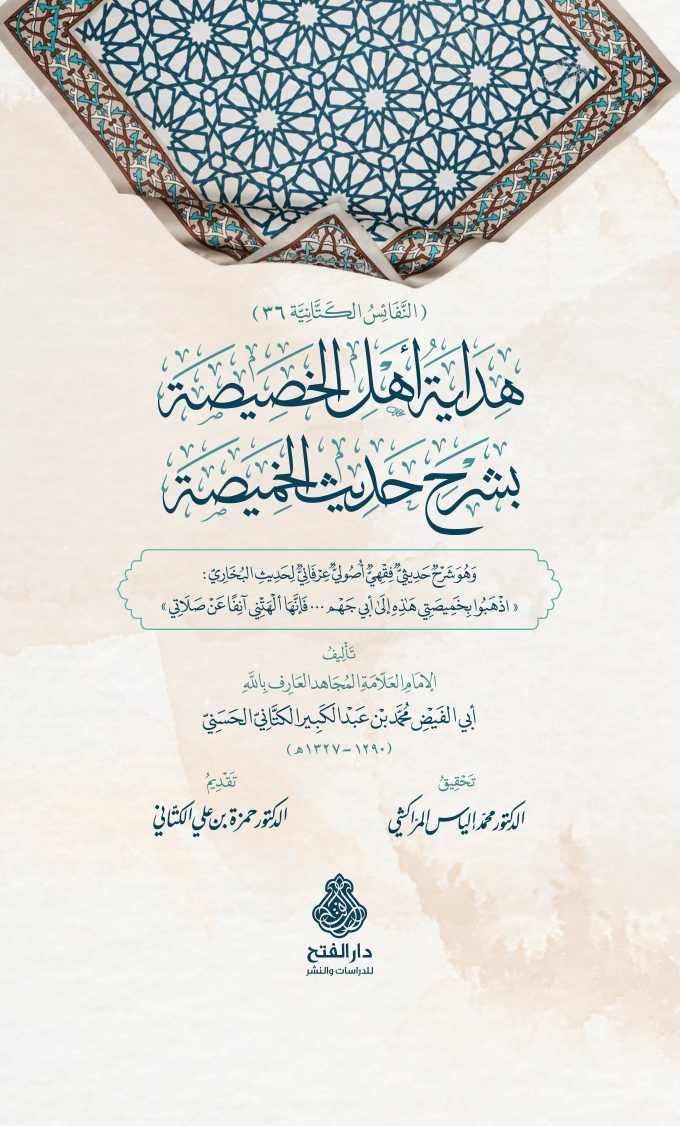 (النَّفَائِسُ الكَتَّانِيَّة ٣٦)
هِدَايَةُ أَهْلِ الخَصِيصَة
بِشَرْحِ حَدِيثِ الخَمِيصَة
وَهُوَ شَرْحٌ حَدِيثِيٌّ فِقْهِيٌّ أُصُولِيٌّ عِرْفَانِيٌّ لِحَدِيثِ البُخَارِيّ:
«اذْهَبُوا بِخَمِيصَتِي هَذِهِ إِلَى أَبِي جَهْم ... فَإِنَّهَا أَلْهَتْنِي آنِفًا عَنْ صَلَاتِي»
تَأْلِيفُ
الإمَامِ العَلَّامَةِ المُجَاهِدِ العَارِفِ بِاللهِ
أبي الفَيْضِ مُحَمَّد بْن عَبْد الكَبِير الكتَّانيّ الحَسَنِيّ
(١٢٩٠-١٣٢٧ه)
تَحْقِيقُ
الدكتور محمد إلياس المراكشي
تَقْدِيمُ
الدكتور حمزة بن علي الكتاني
دار الفتح
للدراسات والنشر